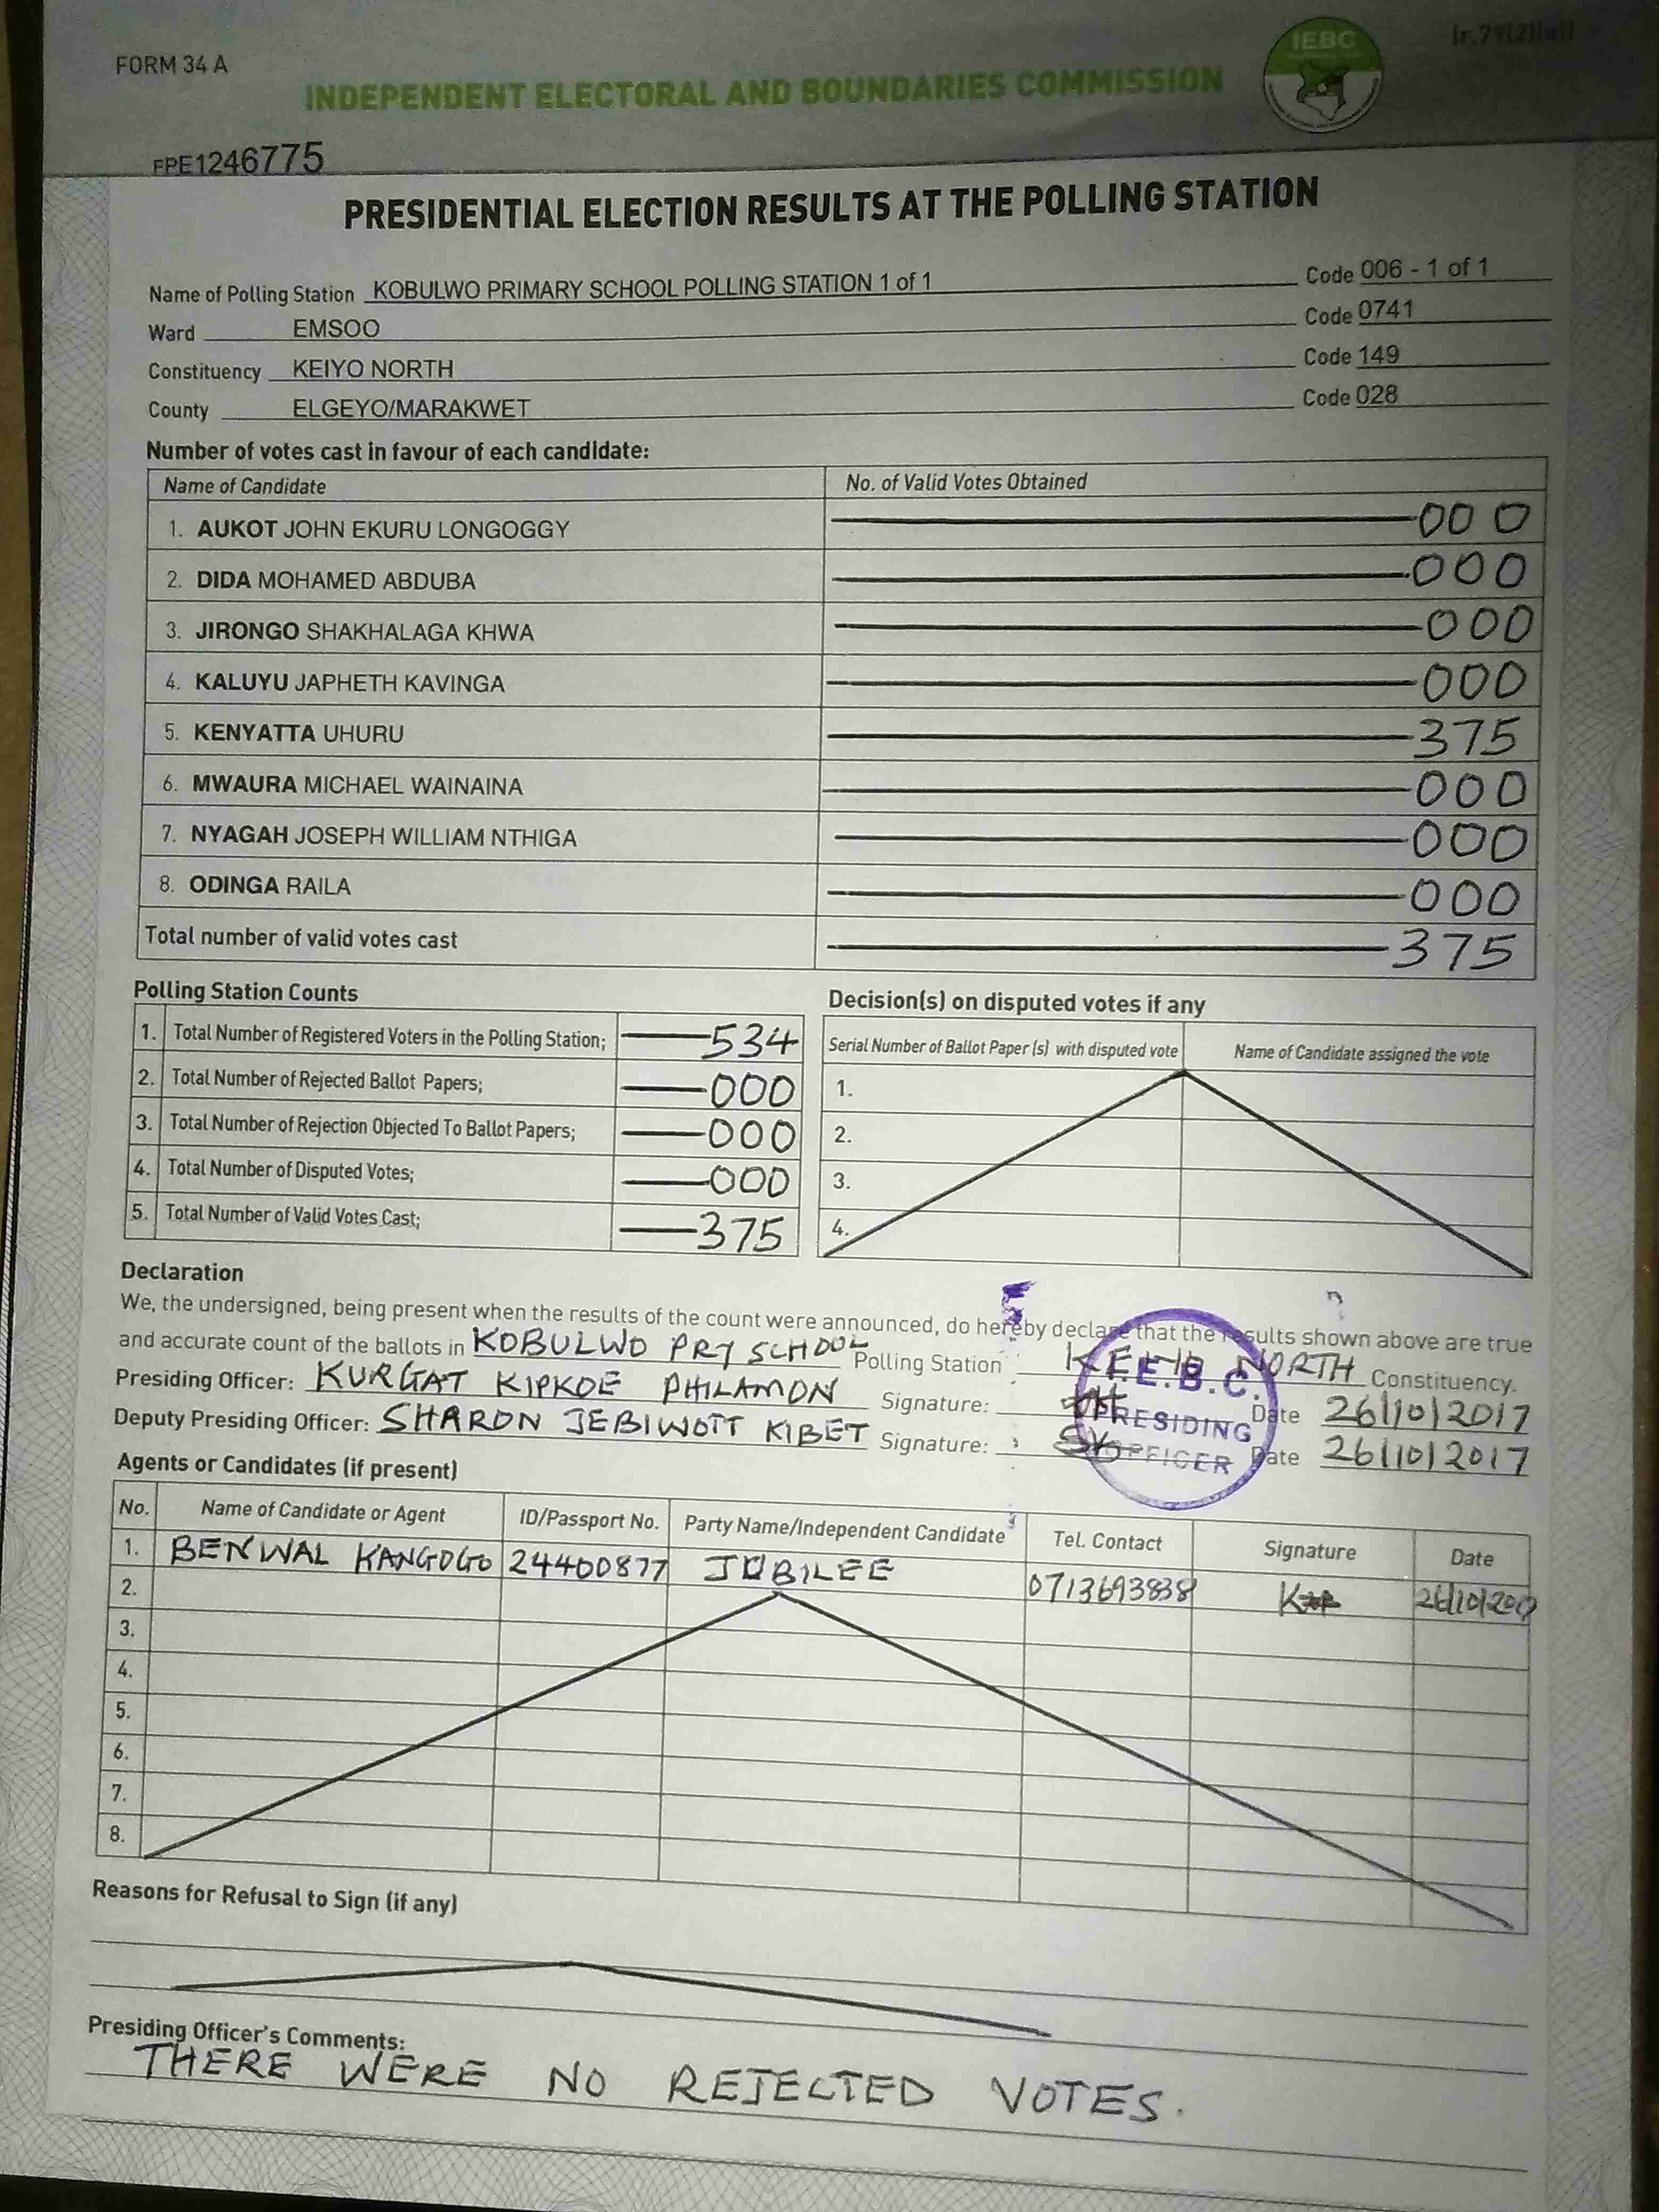 FORM 34 A
INDEPENDENT ELECTORAL AND BOUNDARIES COMMISSION
IEBC
FPE1246775
PRESIDENTIAL ELECTION RESULTS AT THE POLLING STATION
Name of Polling Station KOBULWO PRIMARY SCHOOL POLLING STATION 1 of 1 Code 006 - 1 of 1
Ward EMSOO Code 0741
Constituency KEIYO NORTH Code 149
County ELGEYO/MARAKWET Code 028
Number of votes cast in favour of each candidate:
Name of Candidate No. of Valid Votes Obtained
1. AUKOT JOHN EKURU LONGOGGY 000
2. DIDA MOHAMED ABDUBA 000
3. JIRONGO SHAKHALAGA KHWA 000
4. KALUYU JAPHETH KAVINGA 000
5. KENYATTA UHURU 375
6. MWAURA MICHAEL WAINAINA 000
7. NYAGAH JOSEPH WILLIAM NTHIGA 000
8. ODINGA RAILA 000
Total number of valid votes cast 375
Polling Station Counts
1. Total Number of Registered Voters in the Polling Station; 534
2. Total Number of Rejected Ballot Papers; 000
3. Total Number of Rejection Objected To Ballot Papers; 000
4. Total Number of Disputed Votes; 000
5. Total Number of Valid Votes Cast; 375
Decision(s) on disputed votes if any
Serial Number of Ballot Paper (s) with disputed vote Name of Candidate assigned the vote
1.
2.
3.
4.
Declaration
We, the undersigned, being present when the results of the count were announced, do hereby declare that the results shown above are true
and accurate count of the ballots in KOBULWO PRY SCHOOL Polling Station NORTH Constituency.
Presiding Officer: KURGAT KIPKOE PHILAMON Signature: Date 26/10/2017
Deputy Presiding Officer: SHARON JEBIWOTT KIBET Signature: Date 26/10/2017
I.E.B.C.
PRESIDING
OFFICER
Agents or Candidates (if present)
No. Name of Candidate or Agent ID/Passport No. Party Name/Independent Candidate Tel. Contact Signature Date
1. BENWAL KANGOGO 24400877 JUBILEE 0713693838 26/10/2017
2.
3.
4.
5.
6.
7.
8.
Reasons for Refusal to Sign (if any)
Presiding Officer's Comments:
THERE WERE NO REJECTED VOTES.